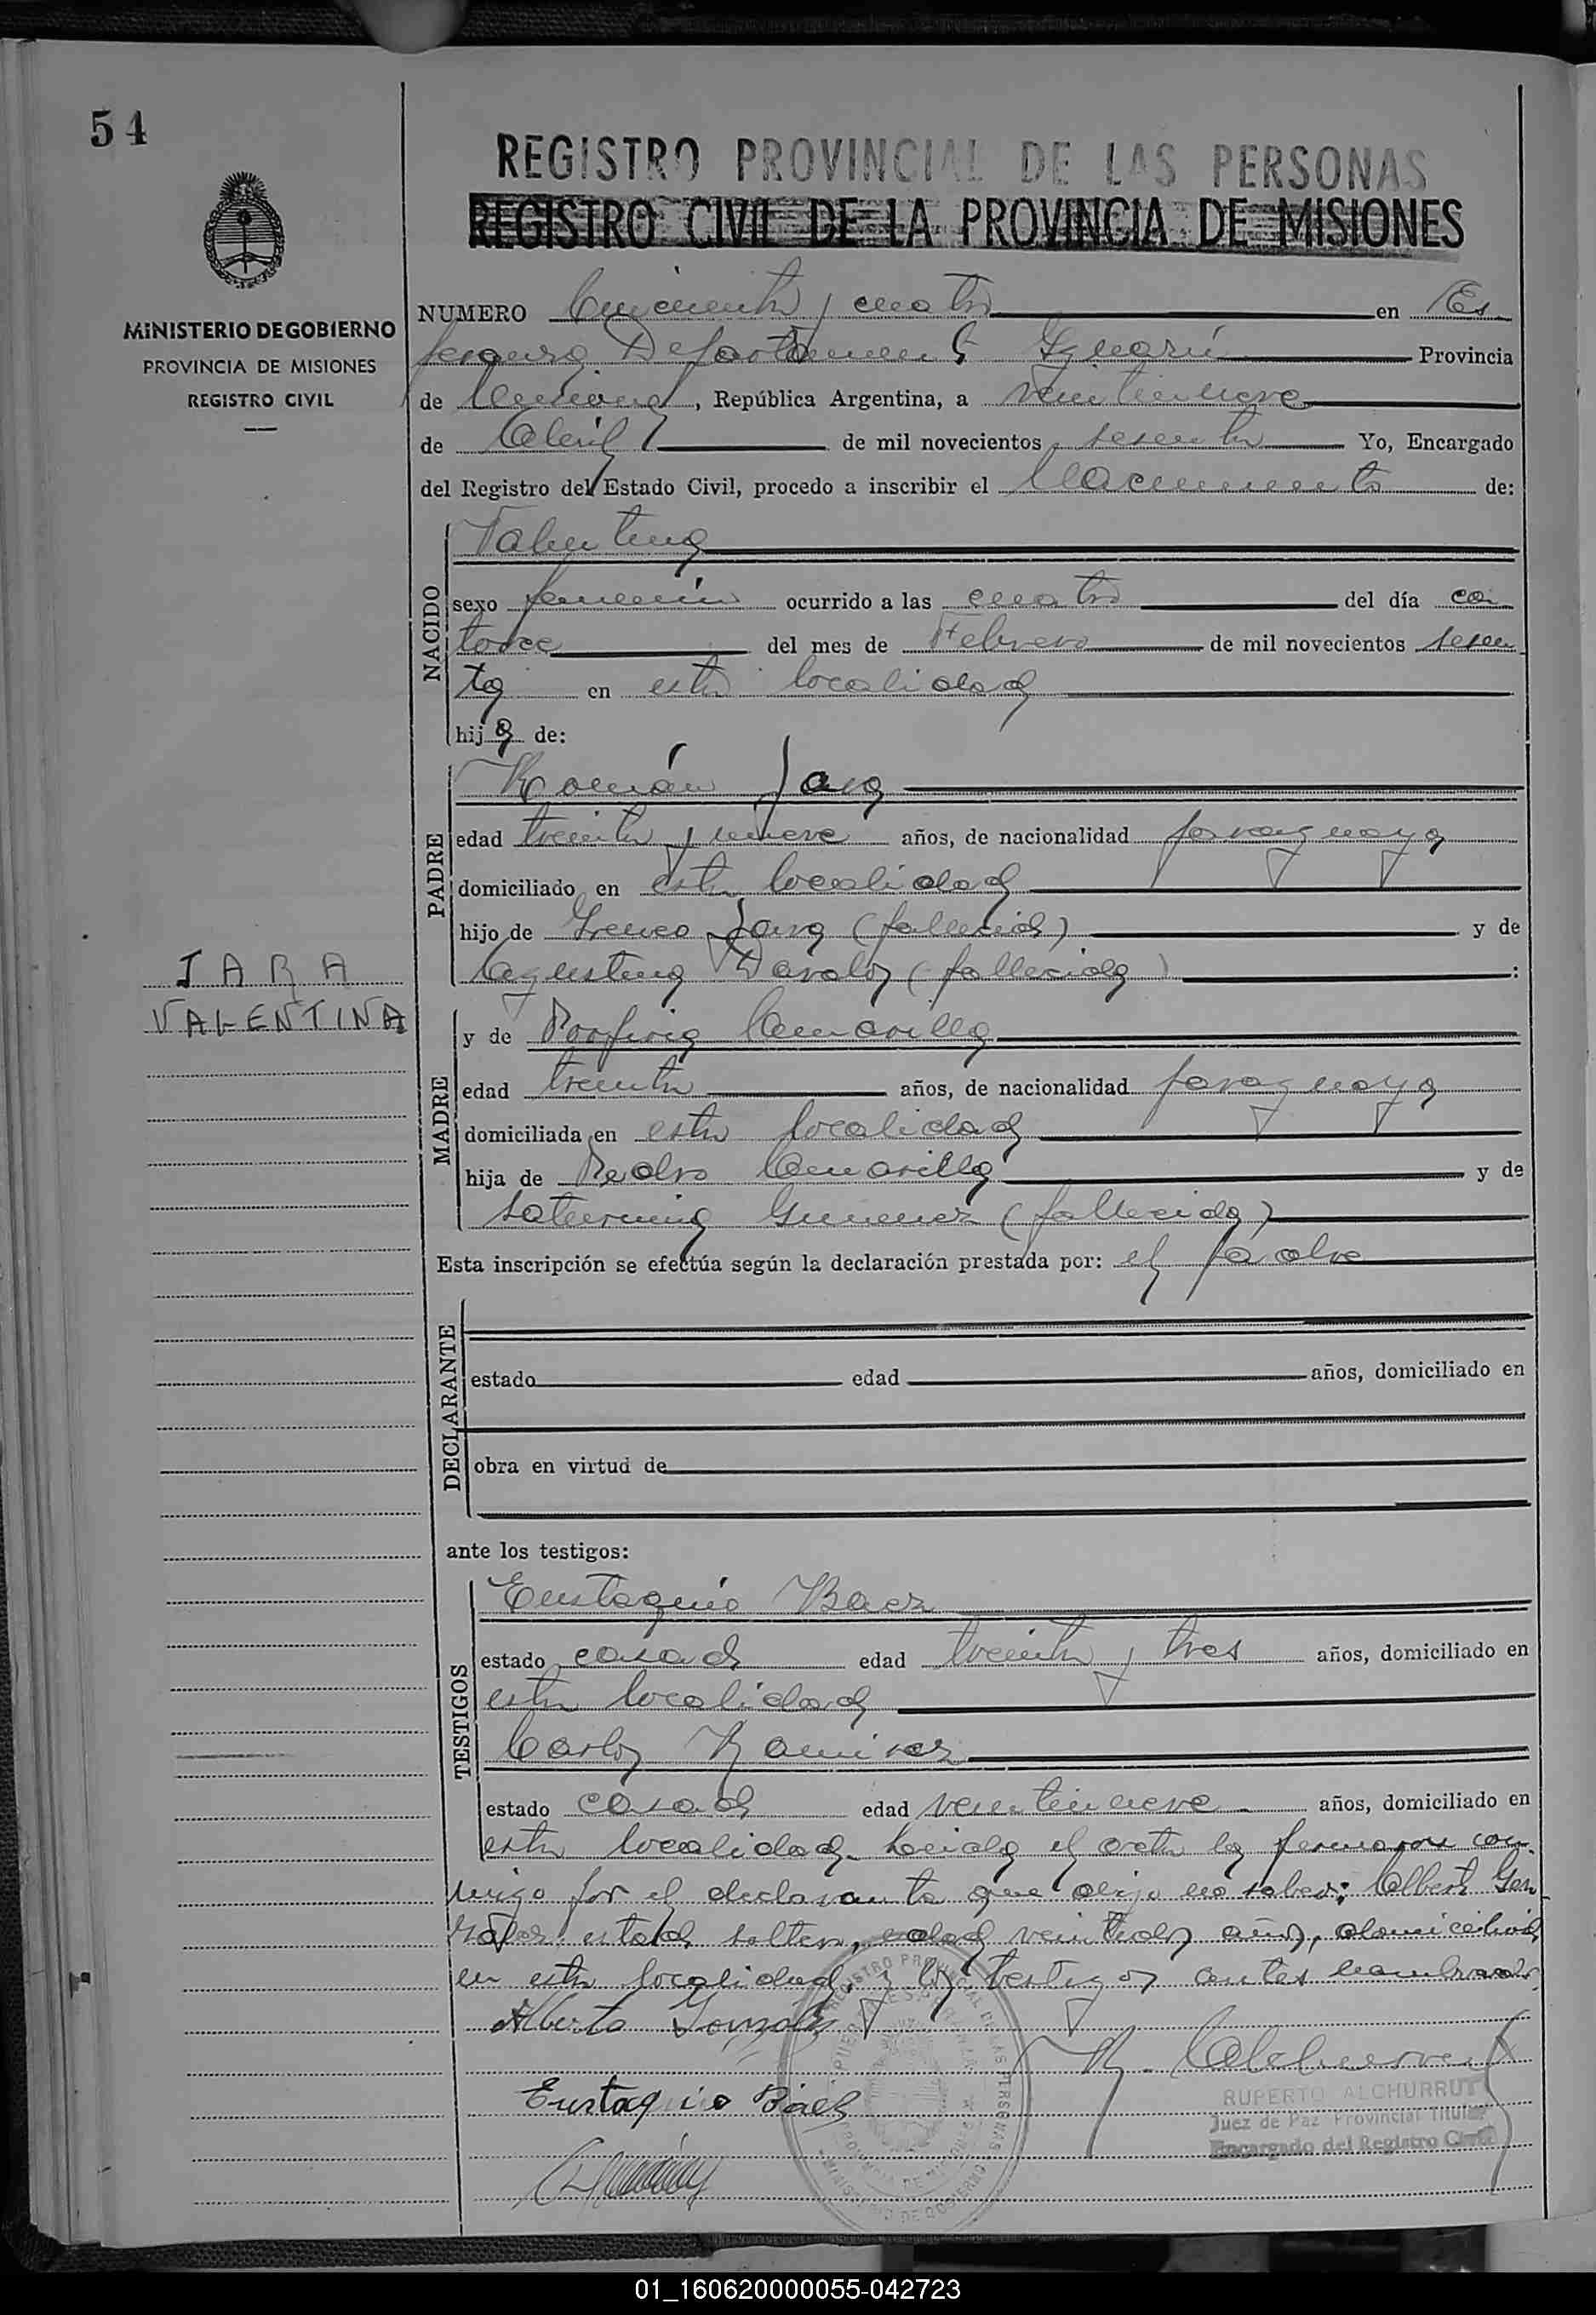 54
REGISTRO PROVINCIAL DE LAS PERSONAS
REGISTRO CIVIL DE LA PROVINCIA DE MISIONES
MINISTERIO DE GOBIERNO
PROVINCIA DE MISIONES
REGISTRO CIVIL
NUMERO Cincuenta y cuatro en Es
peranza Departamento Iguazú Provincia
de Misiones, República Argentina, a veintinueve
de Abril de mil novecientos sesenta Yo, Encargado
del Registro del Estado Civil, procedo a inscribir el Nacimiento de:
NACIDO
Valentina
sexo femenino ocurrido a las cuatro del día ca
torce del mes de Febrero de mil novecientos sesen
ta en esta localidad
hija de:
PADRE
Román Jara
edad treinta y nueve años, de nacionalidad paraguaya
domiciliado en esta localidad
hijo de Ireneo Jara (fallecido) y de
Agustina Davalos (fallecida):
JARA
VALENTINA
MADRE
y de Porfiria Camarilla
edad treinta años, de nacionalidad paraguaya
domiciliada en esta localidad
hija de Pedro Camarilla y de
Saturnina Gimenez (fallecida)
Esta inscripción se efectúa según la declaración prestada por: el padre
DECLARANTE
estado edad años, domiciliado en
obra en virtud de
ante los testigos:
TESTIGOS
Eustaquio Baez
estado casado edad treinta y tres años, domiciliado en
esta localidad
Carlos Ramirez
estado casado edad veintinueve años, domiciliado en
esta localidad. Leida el acta la firmaron con
migo por el declarante que dijo no saber: Alberto Gon
zalez estado soltero, edad veintidos años, domiciliado
en esta localidad. y los testigos antes nombrados.
Alberto Gonzalez
Eustaquio Báez
RUPERTO ALCHURRUT
Juez de Paz Provincial Titular
Encargado del Registro Civil
01_160620000055-042723